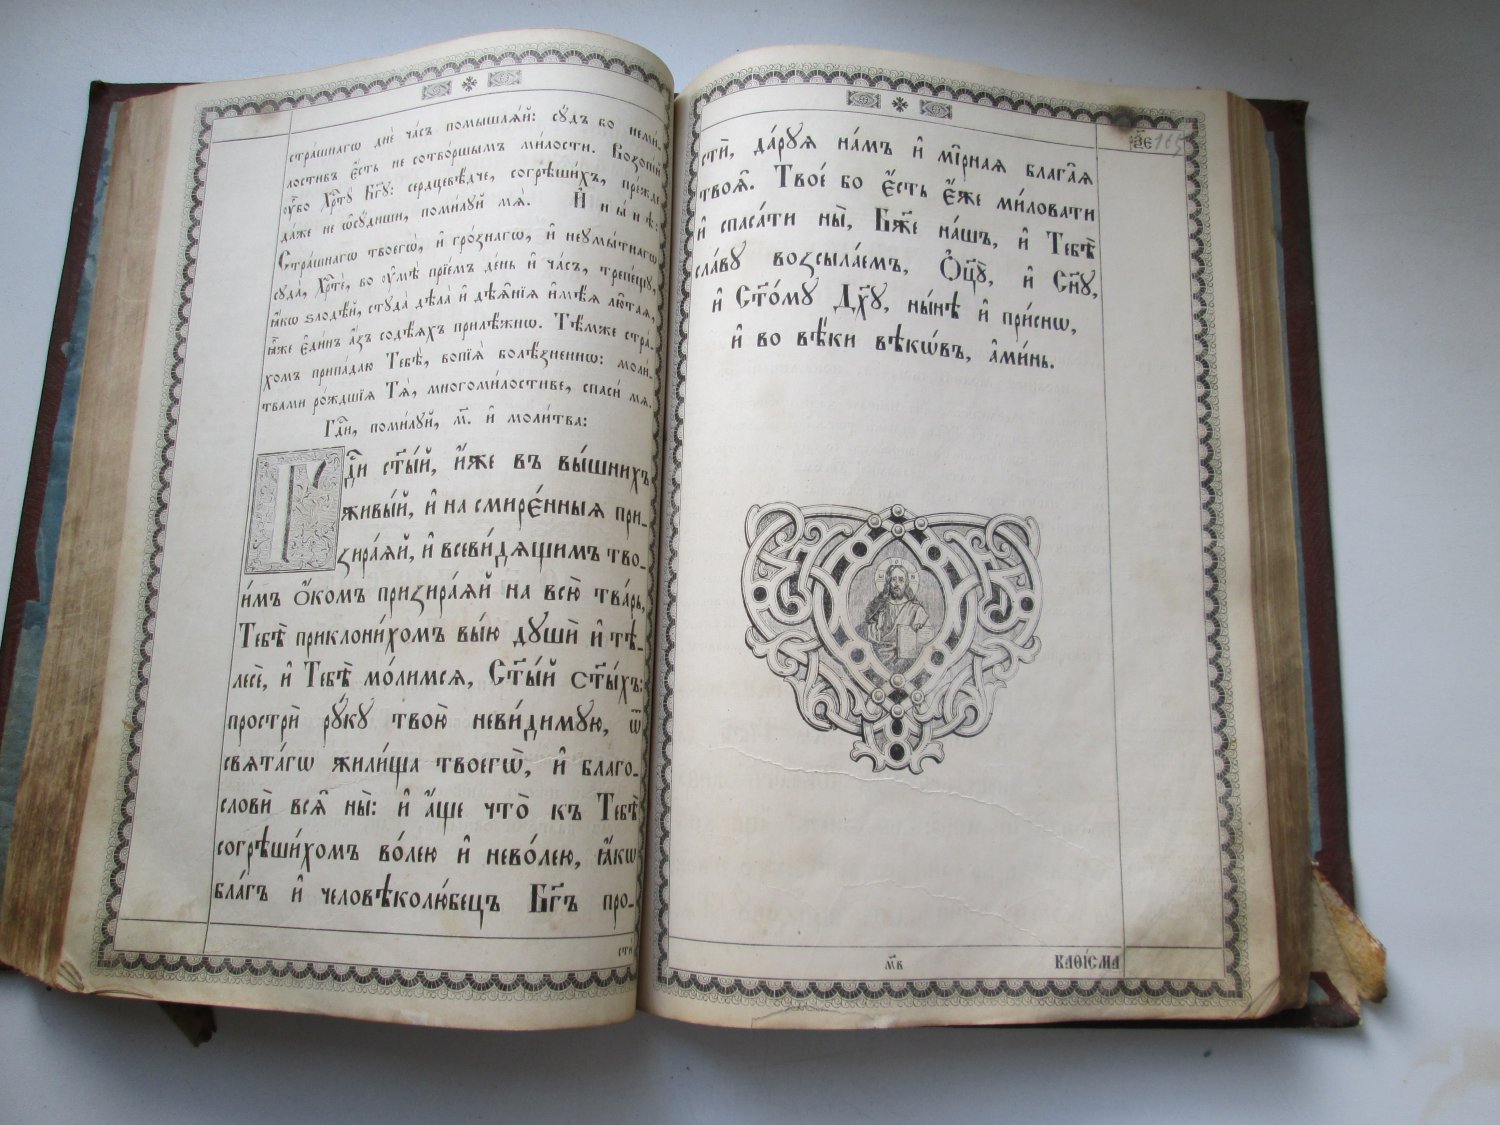 стра́шнагѡ днѐ ча́съ помышлѧ́й: сꙋ́дъ бо неми́-
лостивъ є҆́сть не сотво́ршымъ ми́лости. Возопі́й
ᲂу҆̀бо хрⷭ҇тꙋ̀ бг҃ꙋ: сердцевѣ́дче, согрѣши́хъ, пре́жде
да́же не ѡ҆сꙋ́диши, поми́лꙋй мѧ̀. И҆ ны́нѣ:
Стра́шнагѡ твоегѡ̀, и҆ гро́знагѡ, и҆ неумы́тнагѡ
сꙋда̀, хрⷭ҇тѐ, во ᲂу҆мѣ̀ прїе́мъ де́нь и҆ ча́съ, трепе́щꙋ,
ꙗ҆́кѡ ѕлодѣ́й, стꙋда̀ дѣла̀ и҆ дѣѧ̑нїѧ и҆мѣ́ѧ лю̑таѧ,
ꙗ҆̀же є҆ди́нъ а҆́зъ содѣ́ѧхъ прилѣ́жнѡ. Тѣ́мже стра́-
хомъ припа́даю Тебѣ̀, вопїѧ̀ болѣ́зненнѡ: моли́-
твами ро́ждшїѧ Тѧ̀, многомⷭ҇лостиве, спаси́ мѧ.
Гдⷭ҇и, поми́лꙋй, м҃. и҆ моли́тва:
Гдⷭ҇и ст҃ы́й, и҆́же въ вы́шнихъ
живы́й, и҆ на смирє́нныѧ при-
зира́ѧй, и҆ всеви́дѧщимъ тво-
и́мъ ѻ҆́комъ призира́ѧй на всю̀ тва́рь,
Тебѣ̀ приклони́хомъ вы́ю дꙋшѝ и҆ тѣ-
лесѐ, и҆ Тебѣ̀ мо́лимсѧ, Ст҃ы́й ст҃ы́хъ:
прострѝ рꙋ́кꙋ твою̀ неви́димꙋю, ѿ
свѧта́гѡ жили́ща твоегѡ̀, и҆ благо-
словѝ всѧ̑ ны̀: и҆ а҆́ще что̀ къ Тебѣ̀
согрѣши́хомъ во́лею и҆ нево́лею, ꙗ҆́кѡ
бла́гъ и҆ человѣколю́бецъ Бг҃ъ про-
сти
стѝ, да́рꙋѧ на́мъ и҆ мі̑рнаѧ блага̑ѧ
твоѧ̑. Твое́ бо є҆́сть є҆́же ми́ловати
и҆ спаса́ти ны̀, Бж҃е на́шъ, и҆ Тебѣ̀
сла́вꙋ возсыла́емъ, Ѻ҆ц҃ꙋ̀, и҆ Сн҃ꙋ,
и҆ Ст҃о́мꙋ Дх҃ꙋ, ны́нѣ и҆ при́снѡ,
и҆ во вѣ́ки вѣкѡ́въ, а҆ми́нь.
рѯе 165
м҃в
каѳі́сма